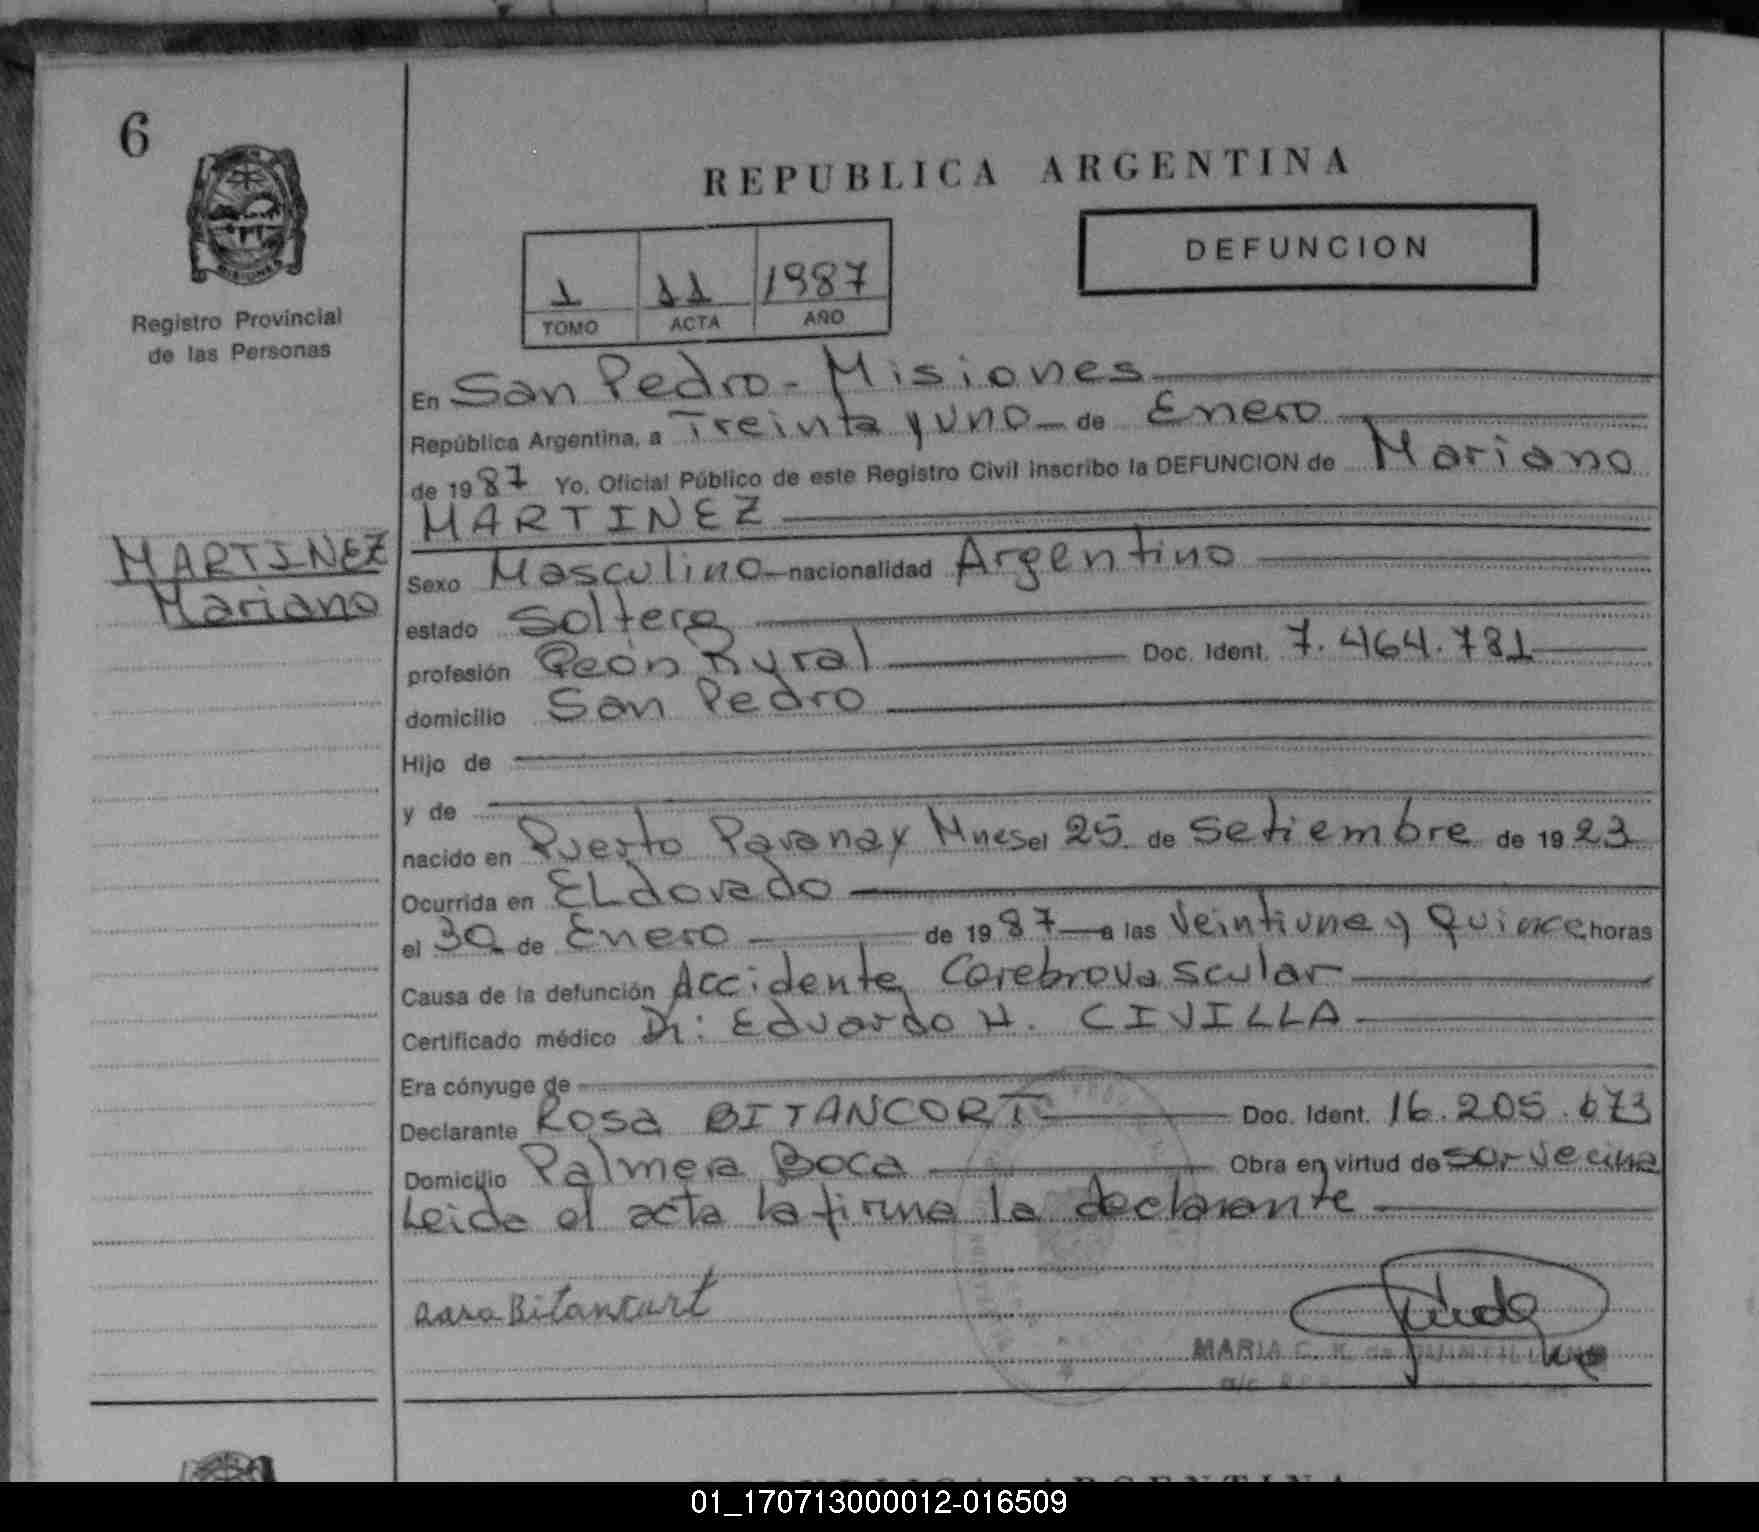 6
REPUBLICA ARGENTINA
MISIONES
Registro Provincial
de las Personas
1 11 1987
TOMO ACTA AÑO
DEFUNCION
En San Pedro - Misiones
República Argentina, a Treinta y uno de Enero
de 1987 Yo, Oficial Público de este Registro Civil inscribo la DEFUNCION de Mariano
MARTINEZ
MARTINEZ
Mariano
Sexo Masculino nacionalidad Argentino
estado Soltero
profesión Peón Rural Doc. Ident. 7.464.781
domicilio San Pedro
Hijo de
y de
nacido en Puerto Paranay Mnes el 25 de Setiembre de 1923
Ocurrida en ELdorado
el 30 de Enero de 1987 a las Veintiuna y Quince horas
Causa de la defunción Accidente Cerebrovascular
Certificado médico Dr: Eduardo H. CIVILLA
Era cónyuge de
Declarante Rosa BITANCORT Doc. Ident. 16.205.673
Domicilio Palmera Boca Obra en virtud de ser vecina
Leida el acta la firma la declarante
Rosa Bitancurt
MARIA C. K. de
01_170713000012-016509